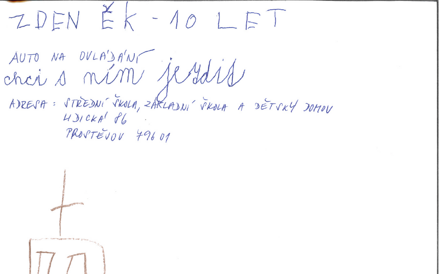 ZDENĚK - 10 LET
AUTO NA OVLÁDÁNÍ
chci s ním jezdis
ADRESA: STŘEDNÍ ŠKOLA, ZÁKLADNÍ ŠKOLA A DĚTSKÝ DOMOV
LIDICKÁ 86
PROSTĚJOV 79601